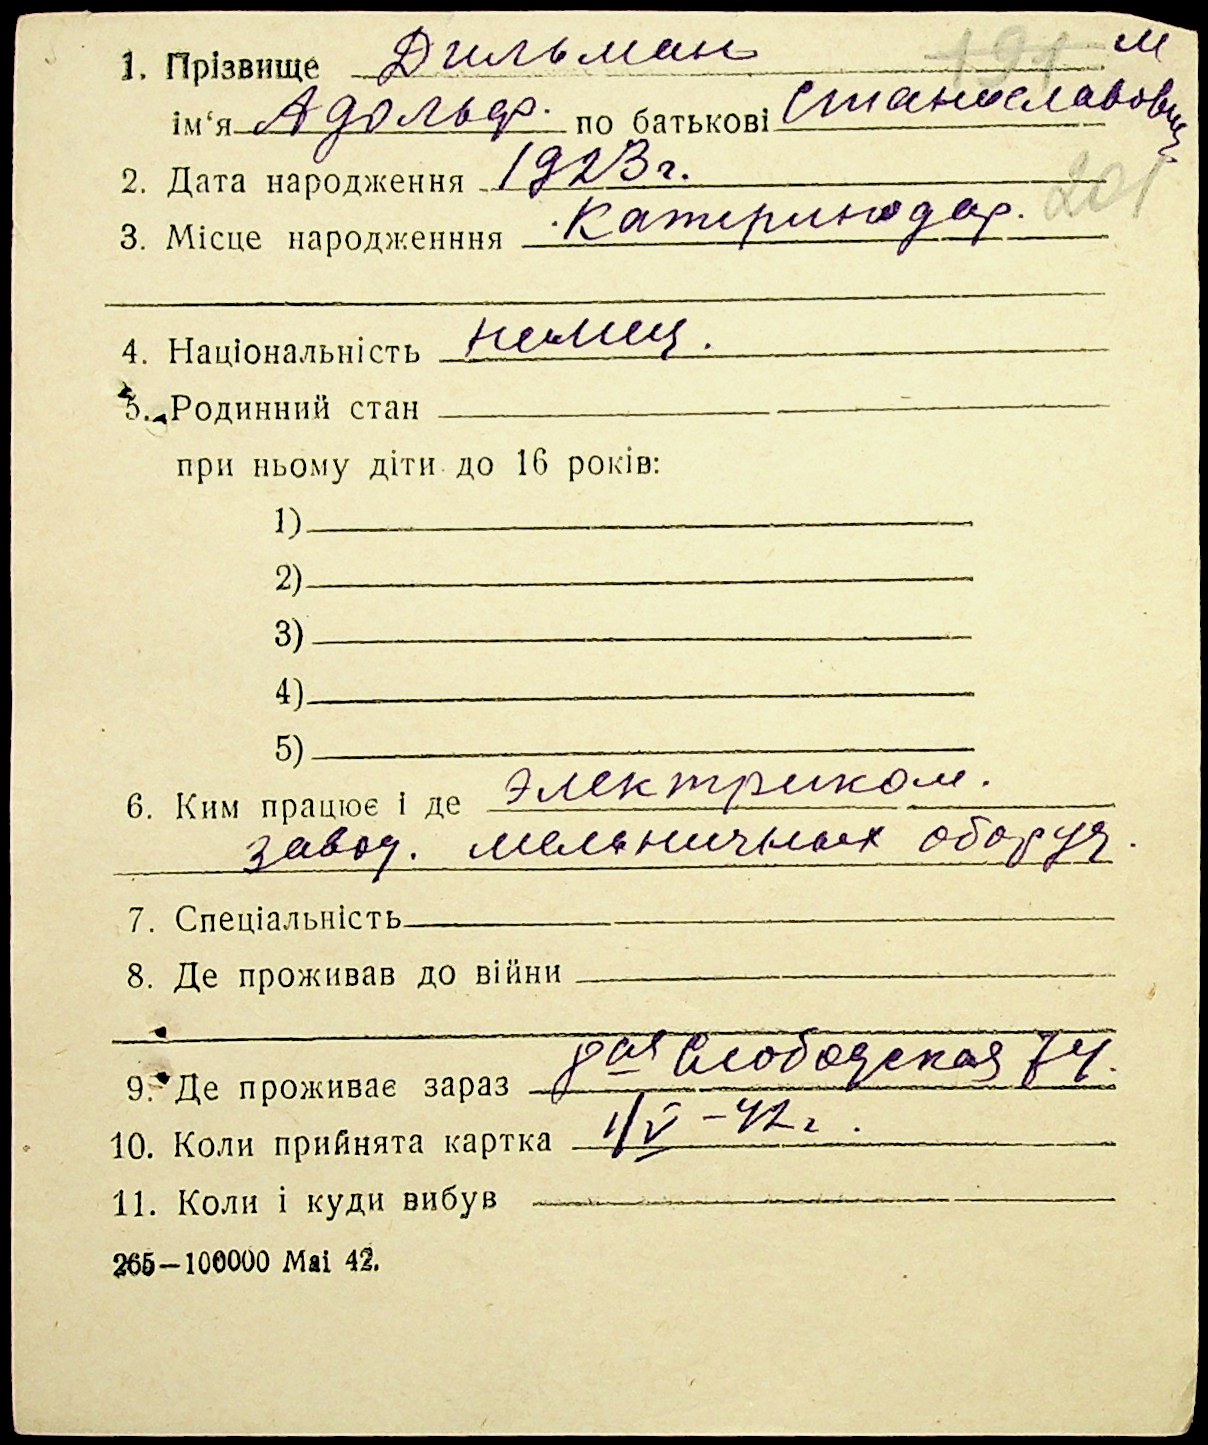 1. Прізвище Дильман 191 м
ім‘я Адольф. по батькові Станиславович
2. Дата народження 1923 г.
201
3. Місце народженння Катеринодар.
4. Національність немец.
5. Родинний стан
при ньому діти до 16 років:
1)
2)
3)
4)
5)
6. Ким працює і де электриком.
завод. мельничных оборуд.
7. Спеціальність
8. Де проживав до війни
9. Де проживає зараз Слободская 74.
10. Коли прийнята картка 1/V – 42 г.
11. Коли і куди вибув
265—100000 Mai 42.